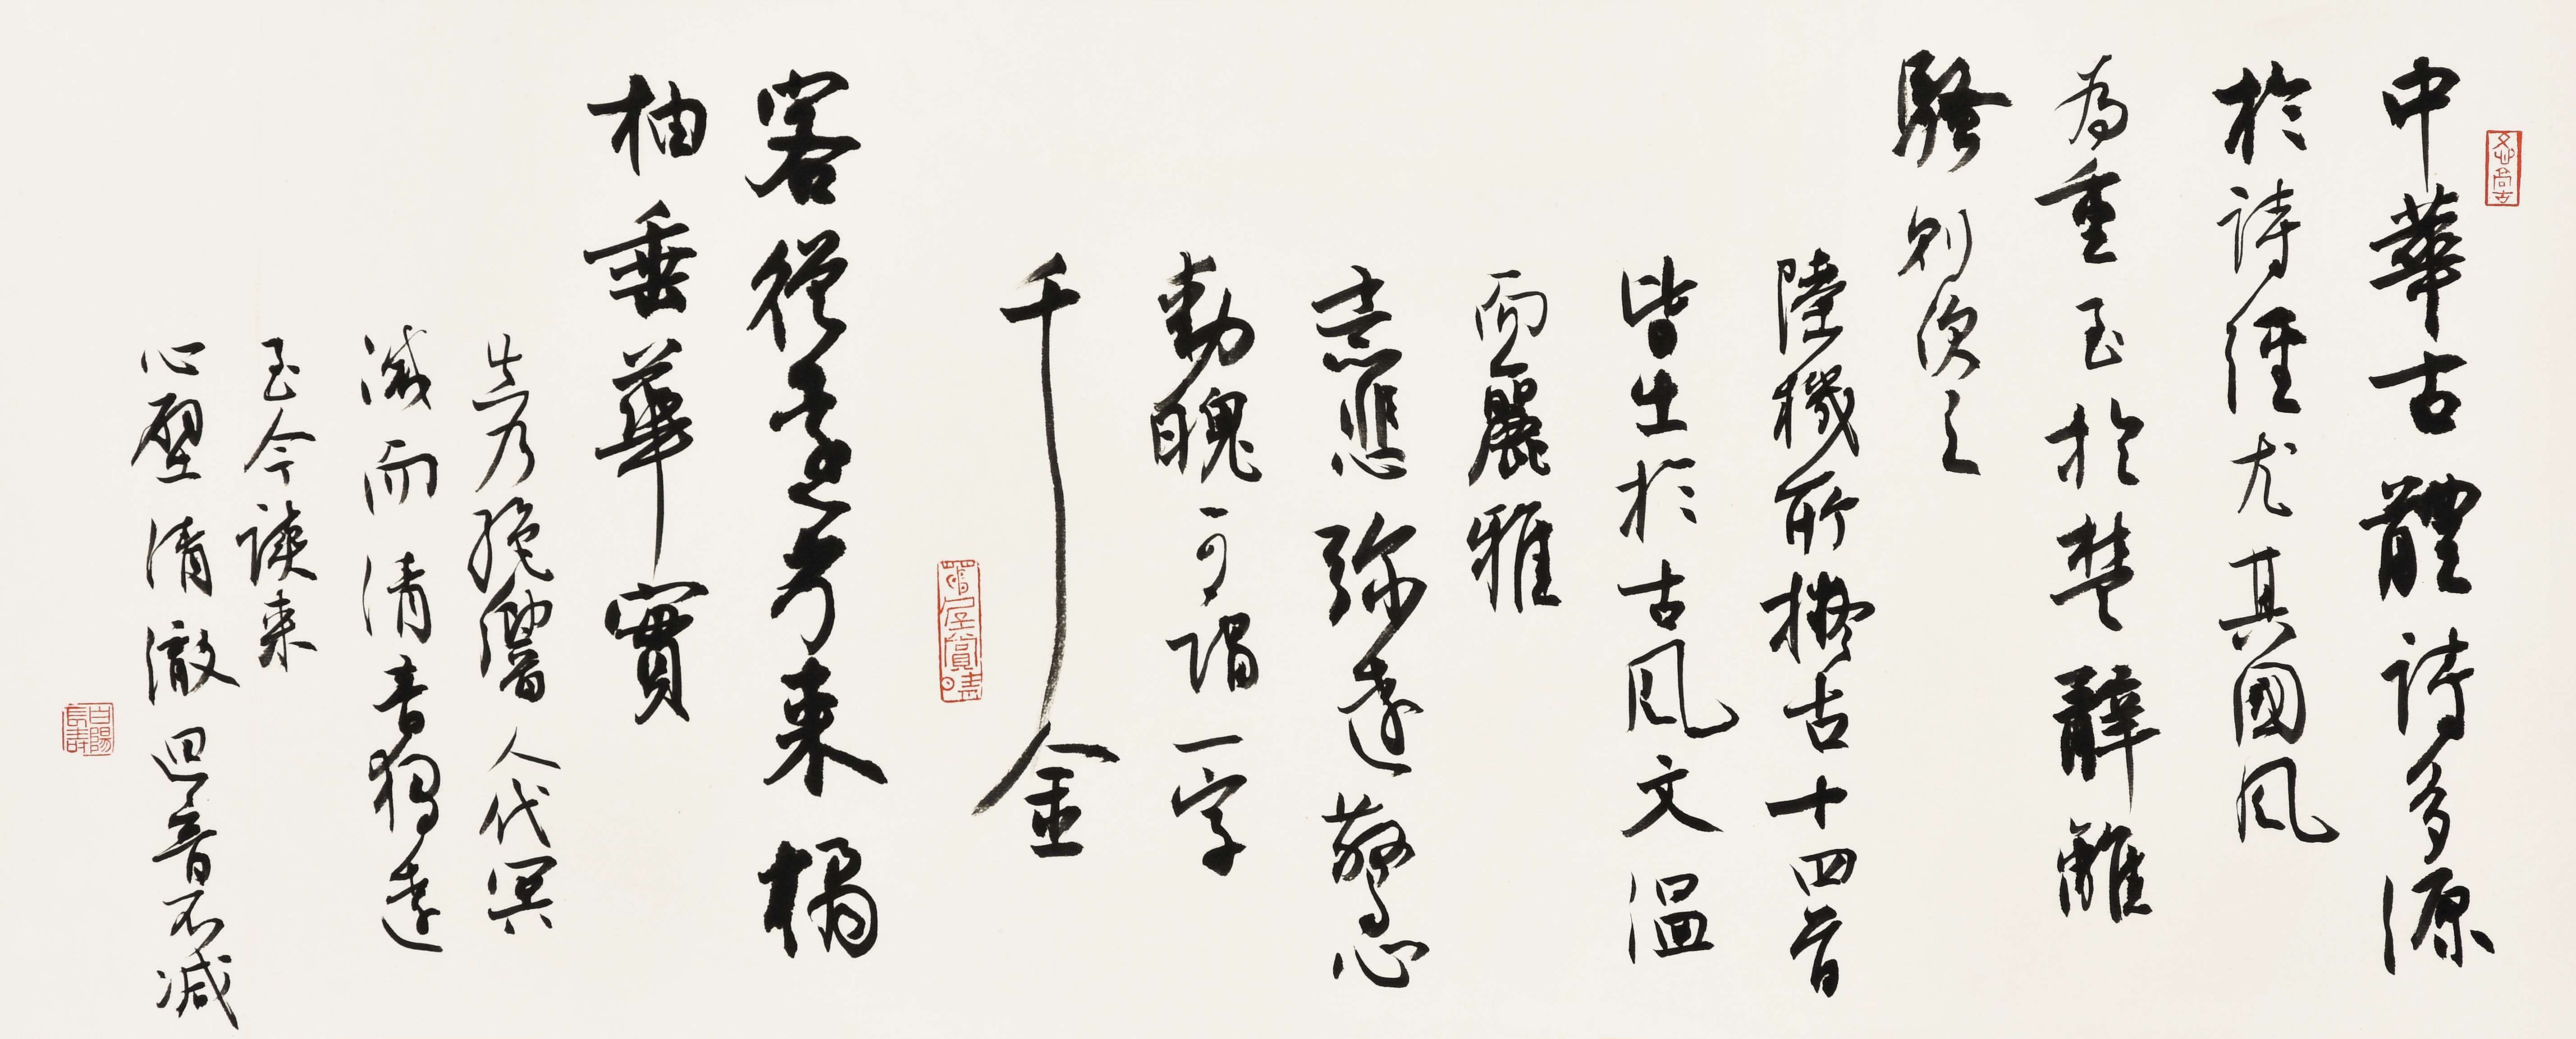 中華古體詩多源
於詩經尤其國風
為重至於楚辭離
騷則次之
陸機所擬古十四首
皆出於古風文溫
而麗雅
意悲弥遠驚心
動魄可謂一字
千金
客從遠方來橘
柚垂華實
真乃絕響人代冥
滅而清音獨遠
至今讀來
心壁清澈迴音不減
白陽長壽